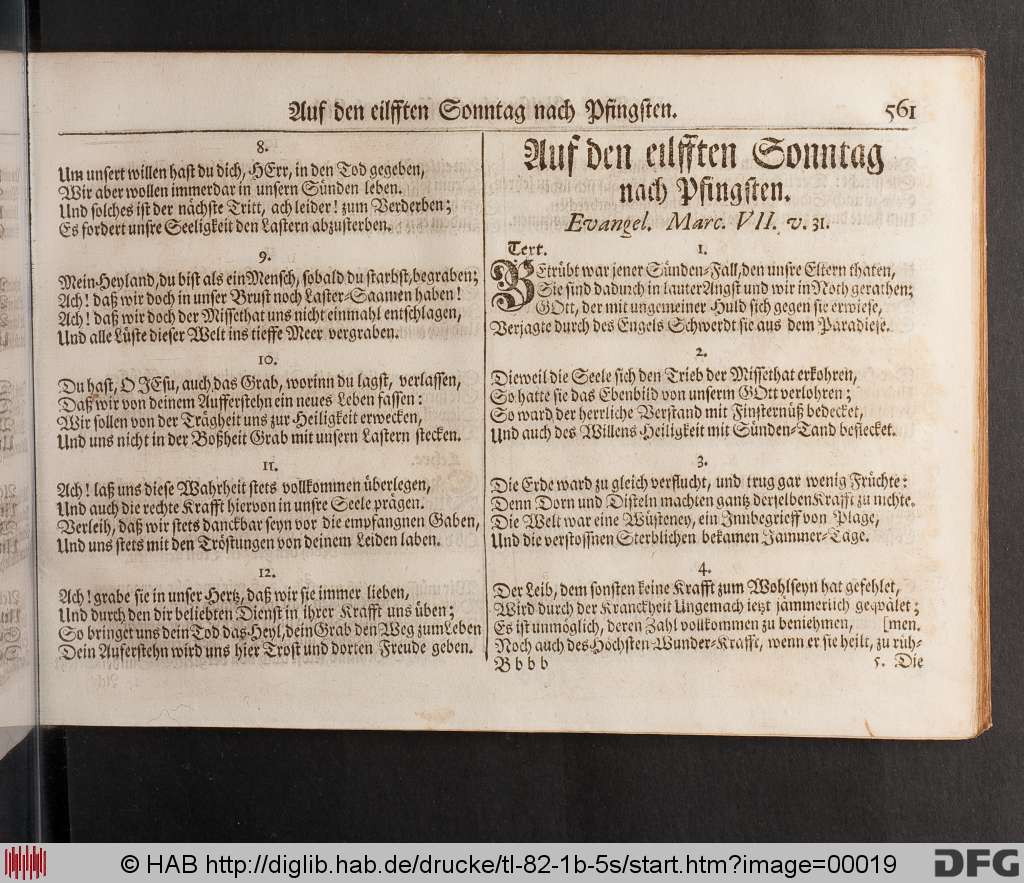 Auf den eilfften Sonntag nach Pfingsten. 561
8.
Um unsert willen hast du dich, HErr, in den Tod gegeben,
Wir aber wollen immerdar in unsern Sünden leben.
Und solches ist der nächste Tritt, ach leider! zum Verderben;
Es fordert unsre Seeligkeit den Lastern abzusterben.
9.
Mein Heyland, du bist als ein Mensch, sobald du starbst, begraben;
Ach! daß wir doch in unser Brust noch Laster-Saamen haben!
Ach! daß wir doch der Missethat uns nicht einmahl entschlagen,
Und alle Lüste dieser Welt ins tieffe Meer vergraben.
10.
Du hast, O JEsu, auch das Grab, worinn du lagst, verlassen,
Daß wir von deinem Aufferstehn ein neues Leben fassen:
Wir sollen von der Trägheit uns zur Heiligkeit erwecken,
Und uns nicht in der Boßheit Grab mit unsern Lastern stecken.
11.
Ach! laß uns diese Wahrheit stets vollkommen überlegen,
Und auch die rechte Krafft hiervon in unsre Seele prägen.
Verleih, daß wir stets danckbar seyn vor die empfangnen Gaben,
Und uns stets mit den Tröstungen von deinem Leiden laben.
12.
Ach! grabe sie in unser Hertz, daß wir sie immer lieben,
Und durch den dir beliebten Dienst in ihrer Krafft uns üben;
So bringet uns dein Tod das Heyl, dein Grab den Weg zum Leben
Dein Auferstehn wird uns hier Trost und dorten Freude geben.
Auf den eilfften Sonntag
nach Pfingsten.
Evangel. Marc. VII. v. 31.
Text. 1.
BEtrübt war jener Sünden-Fall, den unsre Eltern thaten,
Sie sind dadurch in lauter Angst und wir in Noth gerathen;
GOtt, der mit ungemeiner Huld sich gegen sie erwiese,
Verjagte durch des Engels Schwerdt sie aus dem Paradiese.
2.
Dieweil die Seele sich den Trieb der Missethat erkohren,
So hatte sie das Ebenbild von unserm GOtt verlohren;
So ward der herrliche Verstand mit Finsternüß bedecket,
Und auch des Willens Heiligkeit mit Sünden-Tand beflecket.
3.
Die Erde ward zu gleich verflucht, und trug gar wenig Früchte:
Denn Dorn und Disteln machten gantz derselben Krafft zu nichte.
Die Welt war eine Wüsteney, ein Innbegrieff von Plage,
Und die verstossnen Sterblichen bekamen Jammer-Tage.
4.
Der Leib, dem sonsten keine Krafft zum Wohlseyn hat gefehlet,
Wird durch der Kranckheit Ungemach ietzt jämmerlich geqvälet;
Es ist unmöglich, deren Zahl vollkommen zu beniehmen, [men.
Noch auch des Höchsten Wunder-Krafft, wenn er sie heilt, zu rüh-
Bbbb 5. Die
© HAB http://diglib.hab.de/drucke/tl-82-1b-5s/start.htm?image=00019
DFG